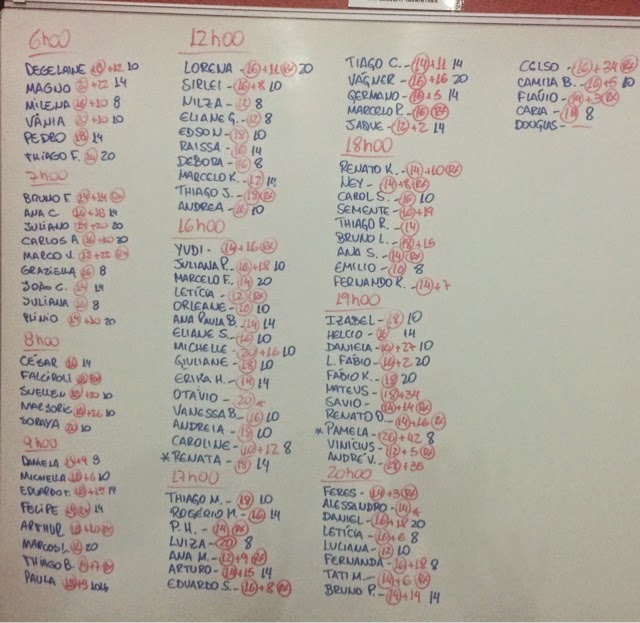 6h00
DEGELAINE - +12 10
MAGNO +22 14
MILENA +10 8
VÂNIA +10 10
PEDRO 18 14
THIAGO F. 20
7h00
BRUNO F. 14+14 RX
ANA C. +18 14
JULIANO +20 20
CARLOS A +10 20
MARCO V. +22
GRAZIELLA 8
JOÃO C. 14 14
JULIANA 8
PLÍNIO +10 20
8h00
CÉSAR 14
FALCIROLI
SUELLEN +20 10
MARJORIE +26 10
SORAYA 10
9h00
DANIELA +9 9
MICHELLA +6 10
EDUARDO F. +15 14
FELIPE 14
ARTHUR
MARCOS L. 20
THIAGO B. +7 RX
PAULA +9
12h00
LORENA - 16+11 RX 20
SIRLEI - 16+8 10
NILZA - 12 8
ELIANE G. - 12 8
EDSON - 18 10
RAISSA - 16 14
DEBORA - 16 8
MARCELO K. - 12 14
THIAGO J. - 18 RX
ANDREA - 16 10
16h00
YUDI - 14+16 RX
JULIANA P. - 16+18 10
MARCELO F. - 14 20
LETÍCIA - 12 RX
ORLEANE - 10 10
ANA PAULA B. - 14 14
ELIANE S. - 10
MICHELLE - 20+16 10
GIULIANE - 18 10
ERIKA H. - 14 14
OTÁVIO - 20 *
VANESSA B. - 16 10
ANDREIA - 18 10
CAROLINE - 10+12 8
* RENATA - 18 14
17h00
THIAGO M. - 18 10
ROGÉRIO M. - 16 14
P.H. - 14 RX
LUIZA - 20 8
ANA M. - 12+9 RX
ARTURO - 14+15 14
EDUARDO S. - 16+8 RX
TIAGO C. - 14+11 14
VAGNER - 16+16 20
GERMANO - 16+5 14
MARCELO P. - 16 RX
JAQUE - 12+2 14
18h00
RENATO K. - 14+10 RX
NEY - 14+8 RX
CAROL S. - 16 10
SEMENTE - 16+19
THIAGO R. - 14
BRUNO L. - 18+15
ANA S. - 14 RX
EMILIO - 10 8
FERNANDO K. - 14+7
19h00
IZABEL - 18 10
HELCIO - 14
DANIELA - 16+27 10
L. FÁBIO - 16+2 20
FÁBIO K. - 18 20
MATEUS - 18+34
SAVIO - 14+14 RX
RENATO D. - 14+16 RX
* PAMELA - 20+42 8
VINÍCIUS - 12+5 RX
ANDRÉ V. - 18+36
20h00
FERES - 14+3 RX
ALESSANDRO - 14 *
DANIEL - 16+18 20
LETÍCIA - 16+6 8
LUCIANA - 12 10
FERNANDA - 16+18 8
TATI M. - 14+6 RX
BRUNO P. - 14+14 14
CELSO - 16+34 RX
CAMILA B. - 16+5 10
FLÁVIO - 14+3 RX
CARLA - 18 8
DOUGLAS -